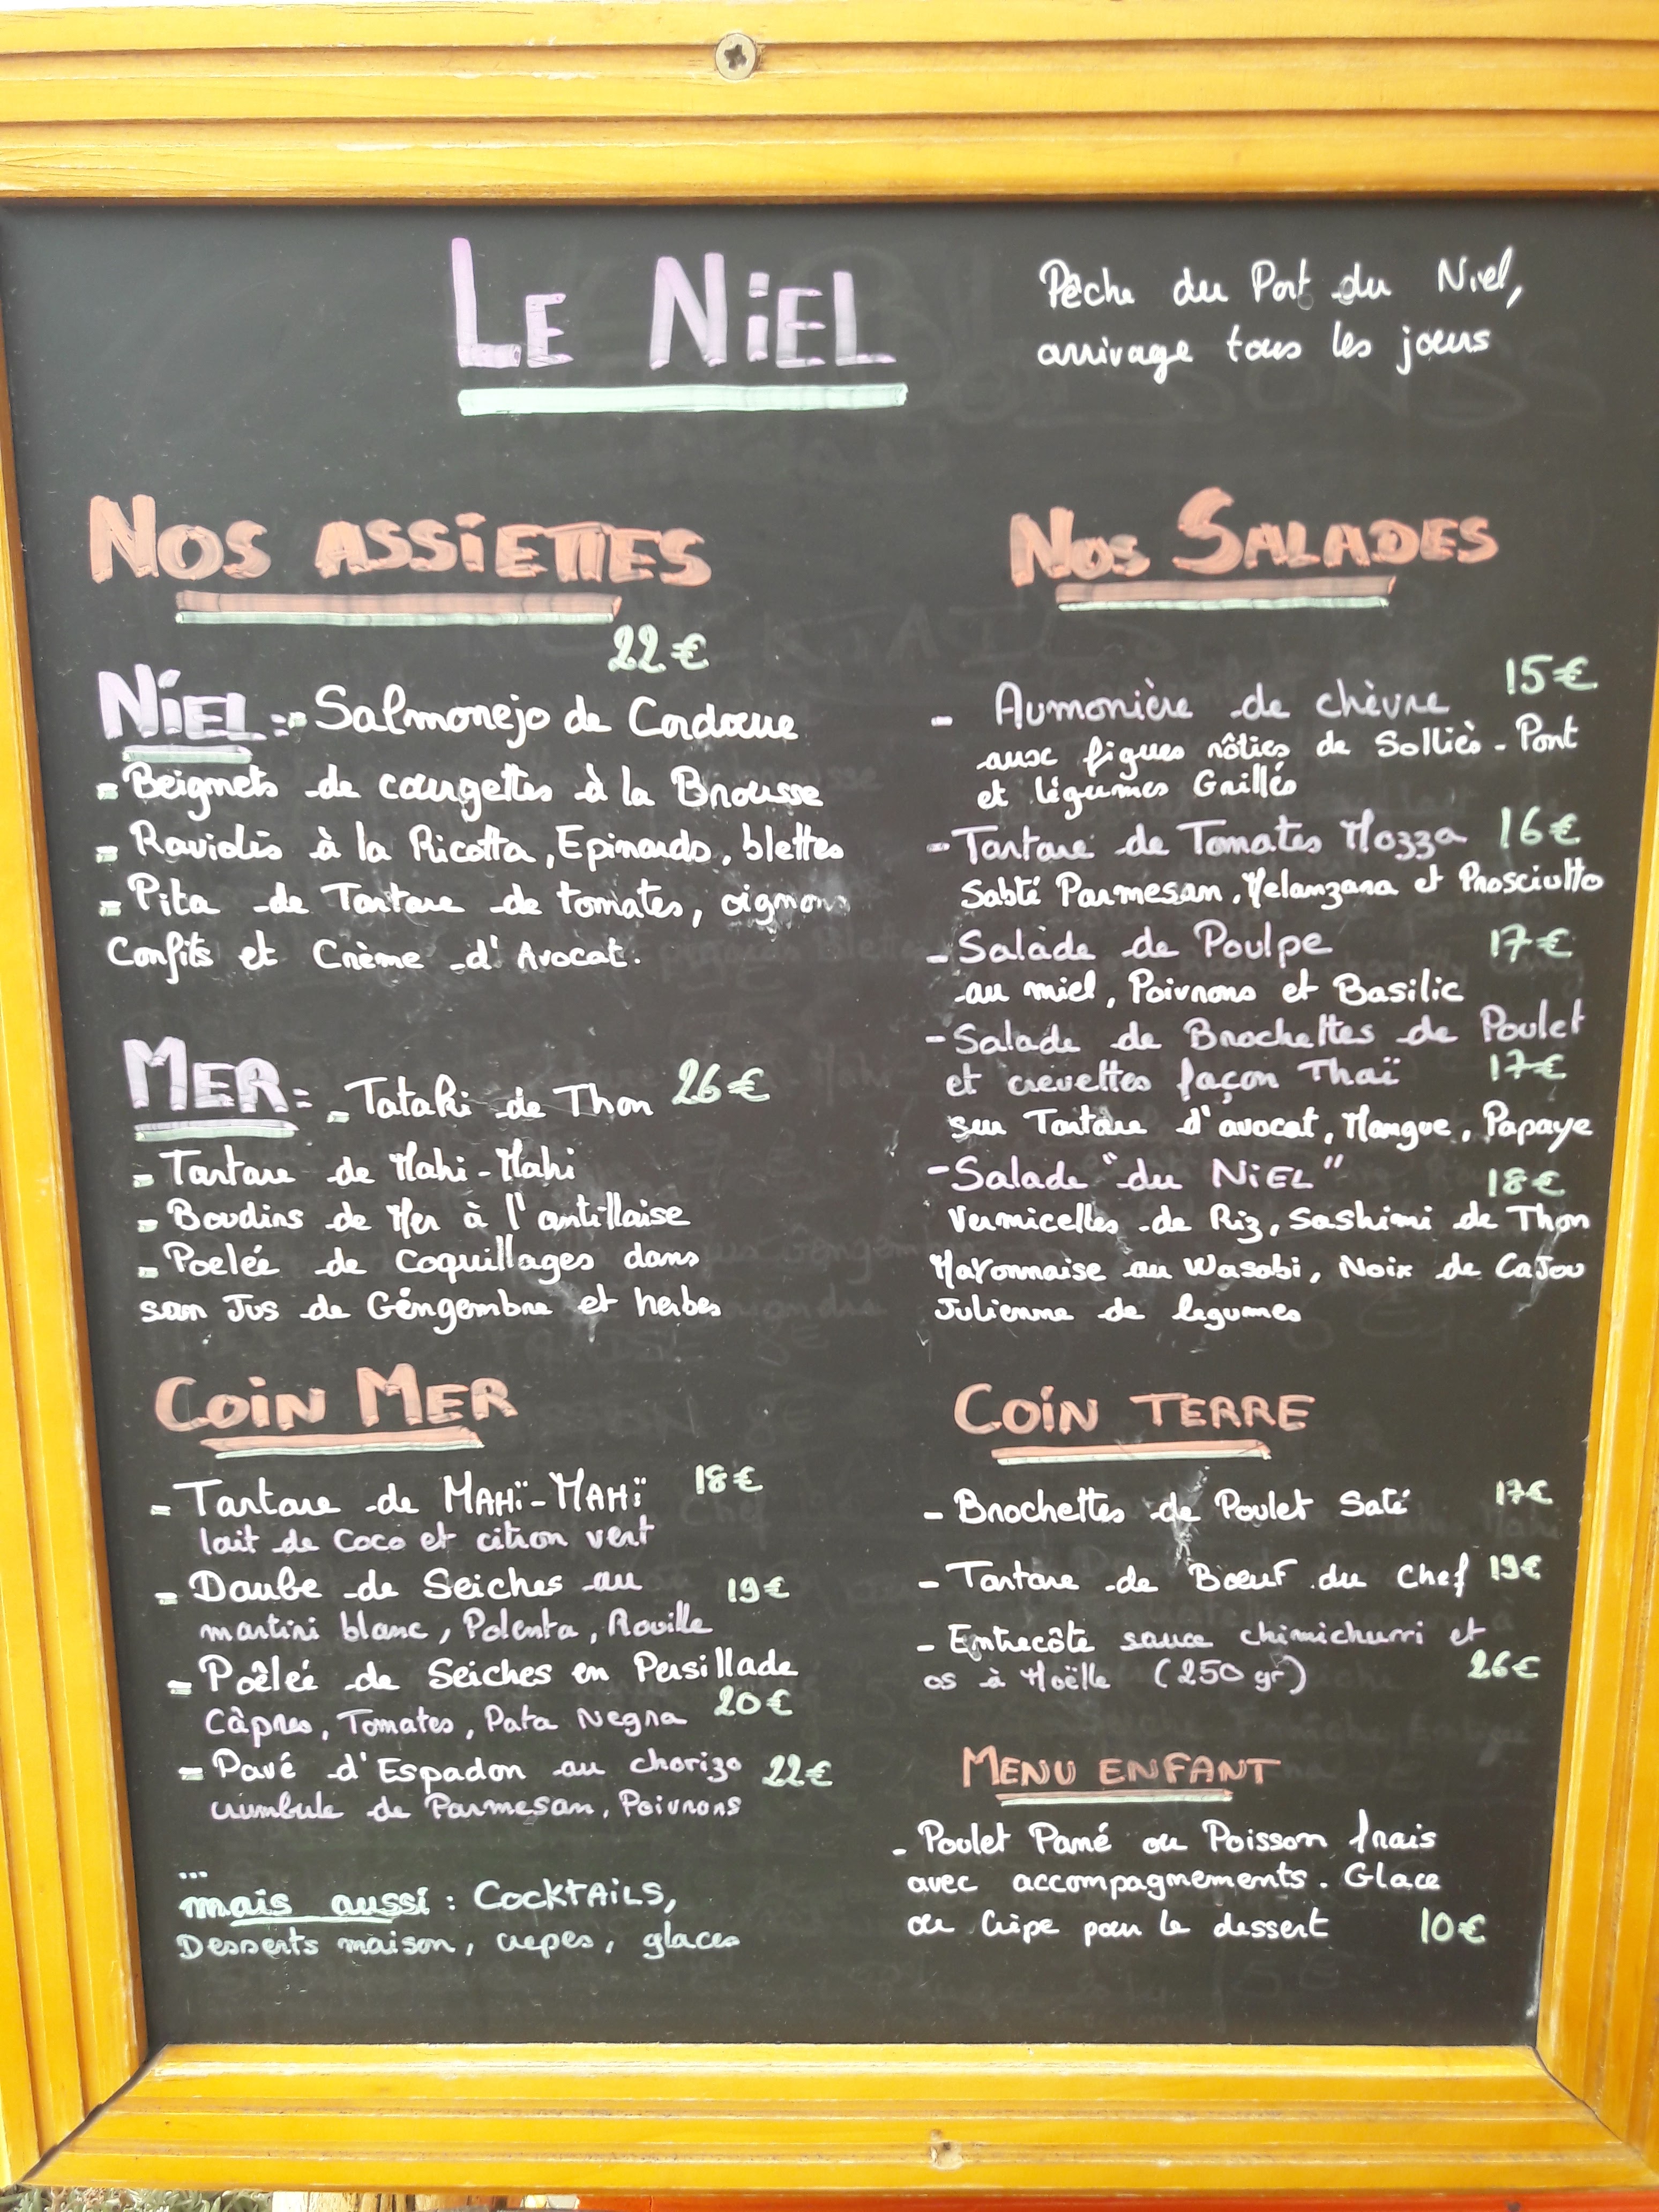 LE NIEL
Pêche du Port du Niel,
arrivage tous les jours
NOS ASSIETTES
22€
NIEL:- Salmonejo de Cordoue
- Beignets de courgettes à la Brousse
- Raviolis à la Ricotta, Epinards, blettes
- Pita de Tartare de tomates, oignons
Confits et Crème d'Avocat.
MER:- Tataki de Thon 26€
- Tartare de Mahi-Mahi
- Boudins de Mer à l'antillaise
- Poelée de Coquillages dans
son Jus de Gingembre et herbes
COIN MER
- Tartare de MAHÏ-MAHÏ 18€
lait de Coco et citron vert
- Daube de Seiches au 19€
martini blanc, Polenta, Rouille
- Poêlée de Seiches en Persillade
Câpres, Tomates, Pata Negra 20€
- Pavé d'Espadon au chorizo 22€
crumbule de Parmesan, Poivrons
...
mais aussi : COCKTAILS,
Desserts maison, crepes, glaces
NOS SALADES
15€
- Aumonière de chèvre
aux figues rôties de Solliès-Pont
et légumes Grillés
- Tartare de Tomates Mozza 16€
Sablé Parmesan, Melanzana et Prosciutto
- Salade de Poulpe 17€
au miel, Poivrons et Basilic
- Salade de Brochettes de Poulet
et crevettes façon Thaï 17€
sur Tartare d'avocat, Mangue, Papaye
- Salade "du NIEL" 18€
Vermicelles de Riz, Sashimi de Thon
Mayonnaise au Wasabi, Noix de Cajou
Julienne de legumes
COIN TERRE
- Brochettes de Poulet Saté 17€
- Tartare de Bœuf du Chef 19€
- Entrecôte sauce chimichurri et
os à Moëlle (250 gr) 26€
MENU ENFANT
- Poulet Pané ou Poisson frais
avec accompagnements. Glace
ou Crêpe pour le dessert 10€